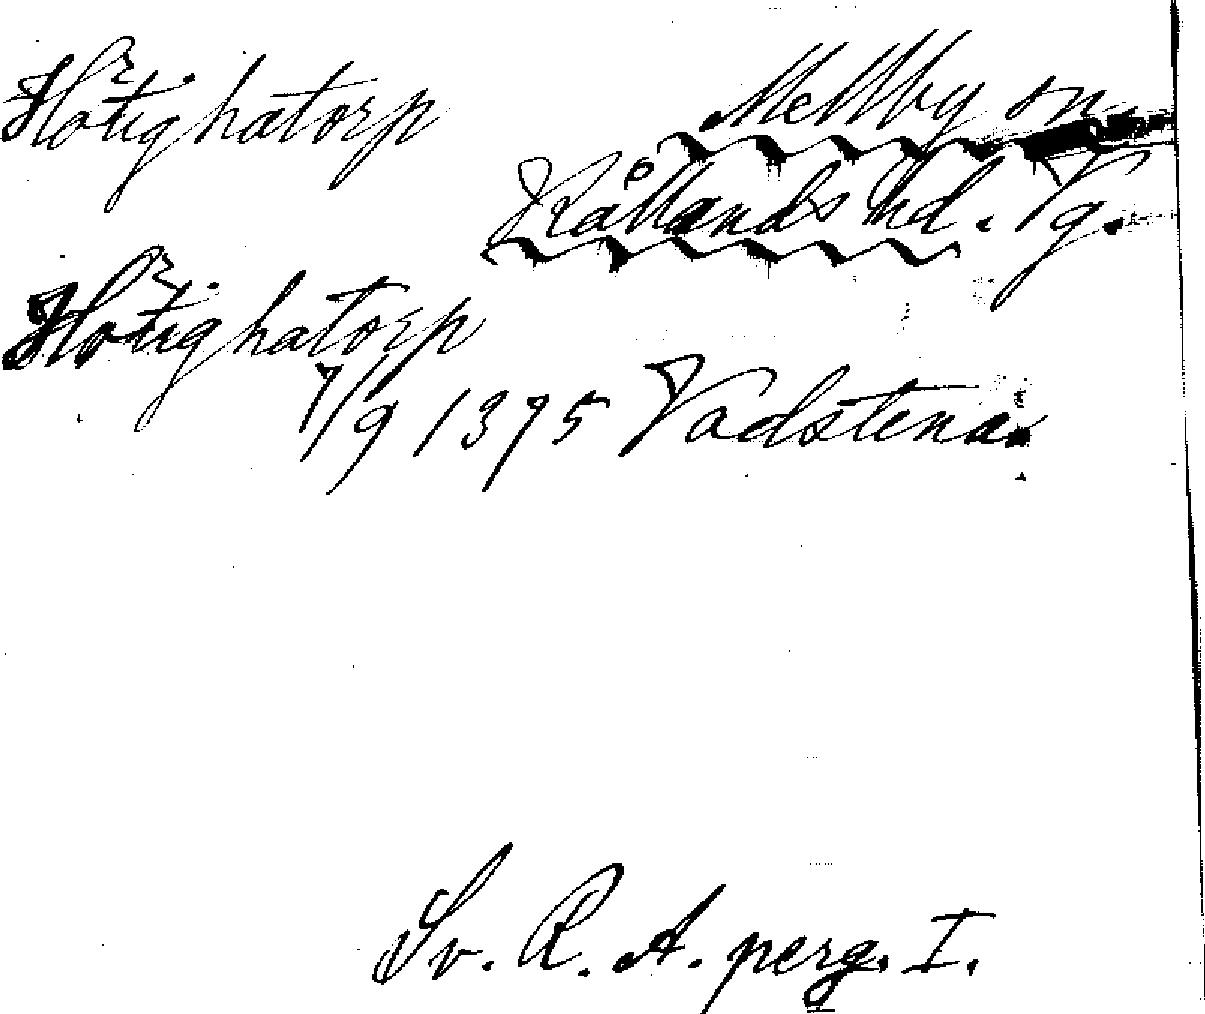 Hötighatorp Mellby sn
Kållands hd. Vg.
Hötighatorp
7/9 1395 Vadstena.
Sv. R. A. perg. I.